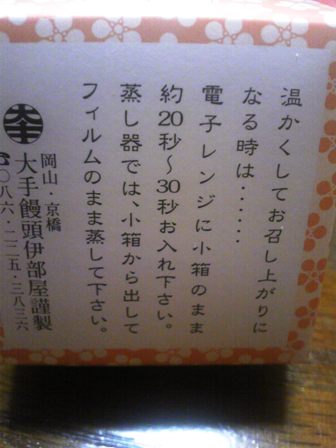 温かくしてお召し上がりに
なる時は……
電子レンジに小箱のまま
約20秒～30秒お入れ下さい。
蒸し器では、小箱から出して
フィルムのまま蒸して下さい。
岡山・京橋
大手饅頭伊部屋謹製
☎〇八六・二二五・三八三六